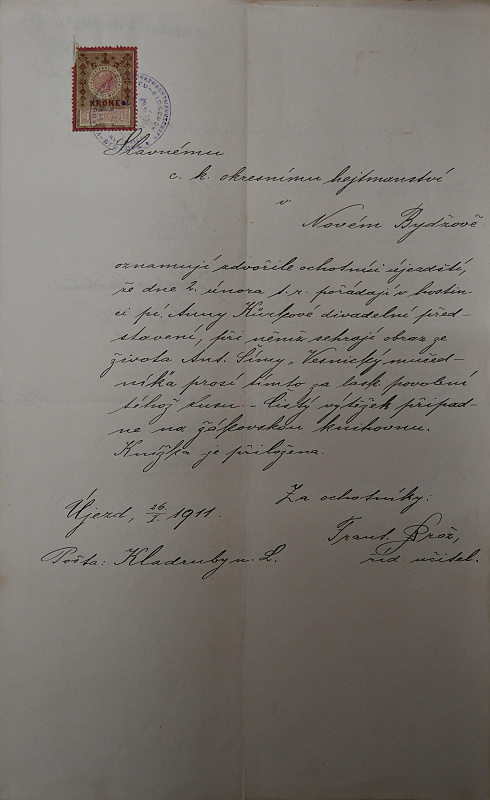 KRONE
Slavnému
c. k. okresnímu hejtmanství
v
Novém Bydžově
oznamují zdvořile ochotníci újezdští,
že dne 2. února t. r. pořádají v hostin-
ci pí. Anny divadelní před-
stavení, při němž sehrají obraz ze
života Ant. Šímy „Vesnický mučed-
ník" a prosí tímto za lask. povolení
téhož kusu - Čistý výtěžek připad-
ne na žákovskou knihovnu.
Knížka je přiložena.
Za ochotníky:
Újezd, 26/I. 1911.
Frant. Brož,
Pošta: Kladruby n. L.
říd. učitel.